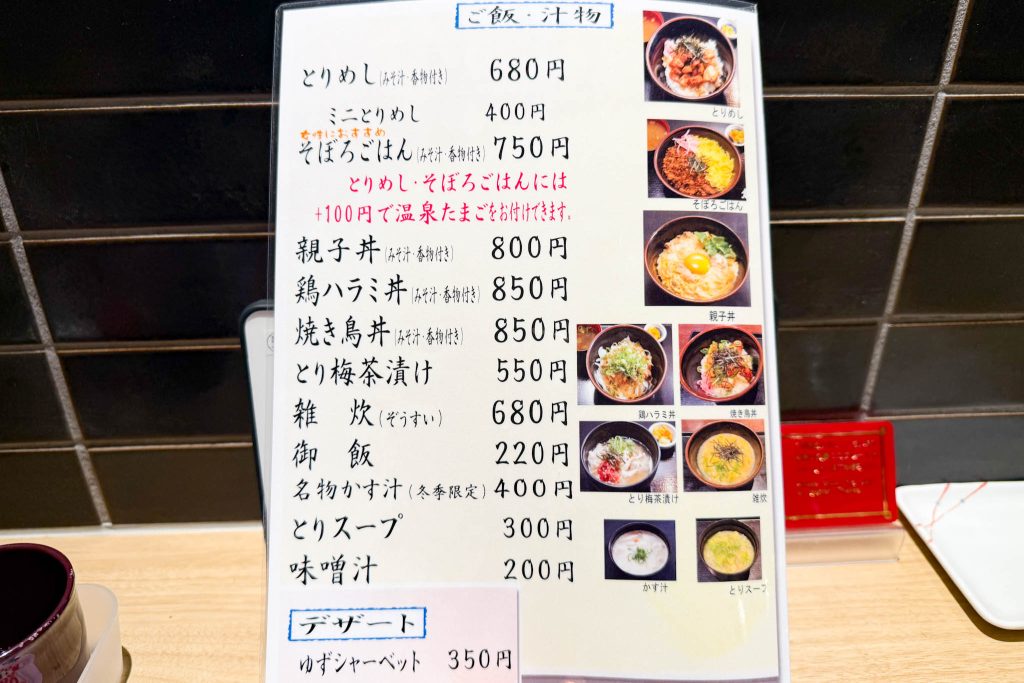 ご飯・汁物
とりめし(みそ汁・香物付き) 680円
ミニとりめし 400円
女性におすすめ
そぼろごはん(みそ汁・香物付き) 750円
とりめし・そぼろごはんには
+100円で温泉たまごをお付けできます。
親子丼(みそ汁・香物付き) 800円
鶏ハラミ丼(みそ汁・香物付き) 850円
焼き鳥丼(みそ汁・香物付き) 850円
とり梅茶漬け 550円
雑 炊(ぞうすい) 680円
御 飯 220円
名物かす汁(冬季限定) 400円
とりスープ 300円
味噌汁 200円
デザート
ゆずシャーベット 350円
とりめし
そぼろごはん
親子丼
鶏ハラミ丼
焼き鳥丼
とり梅茶漬け
雑炊
かす汁
とりスープ